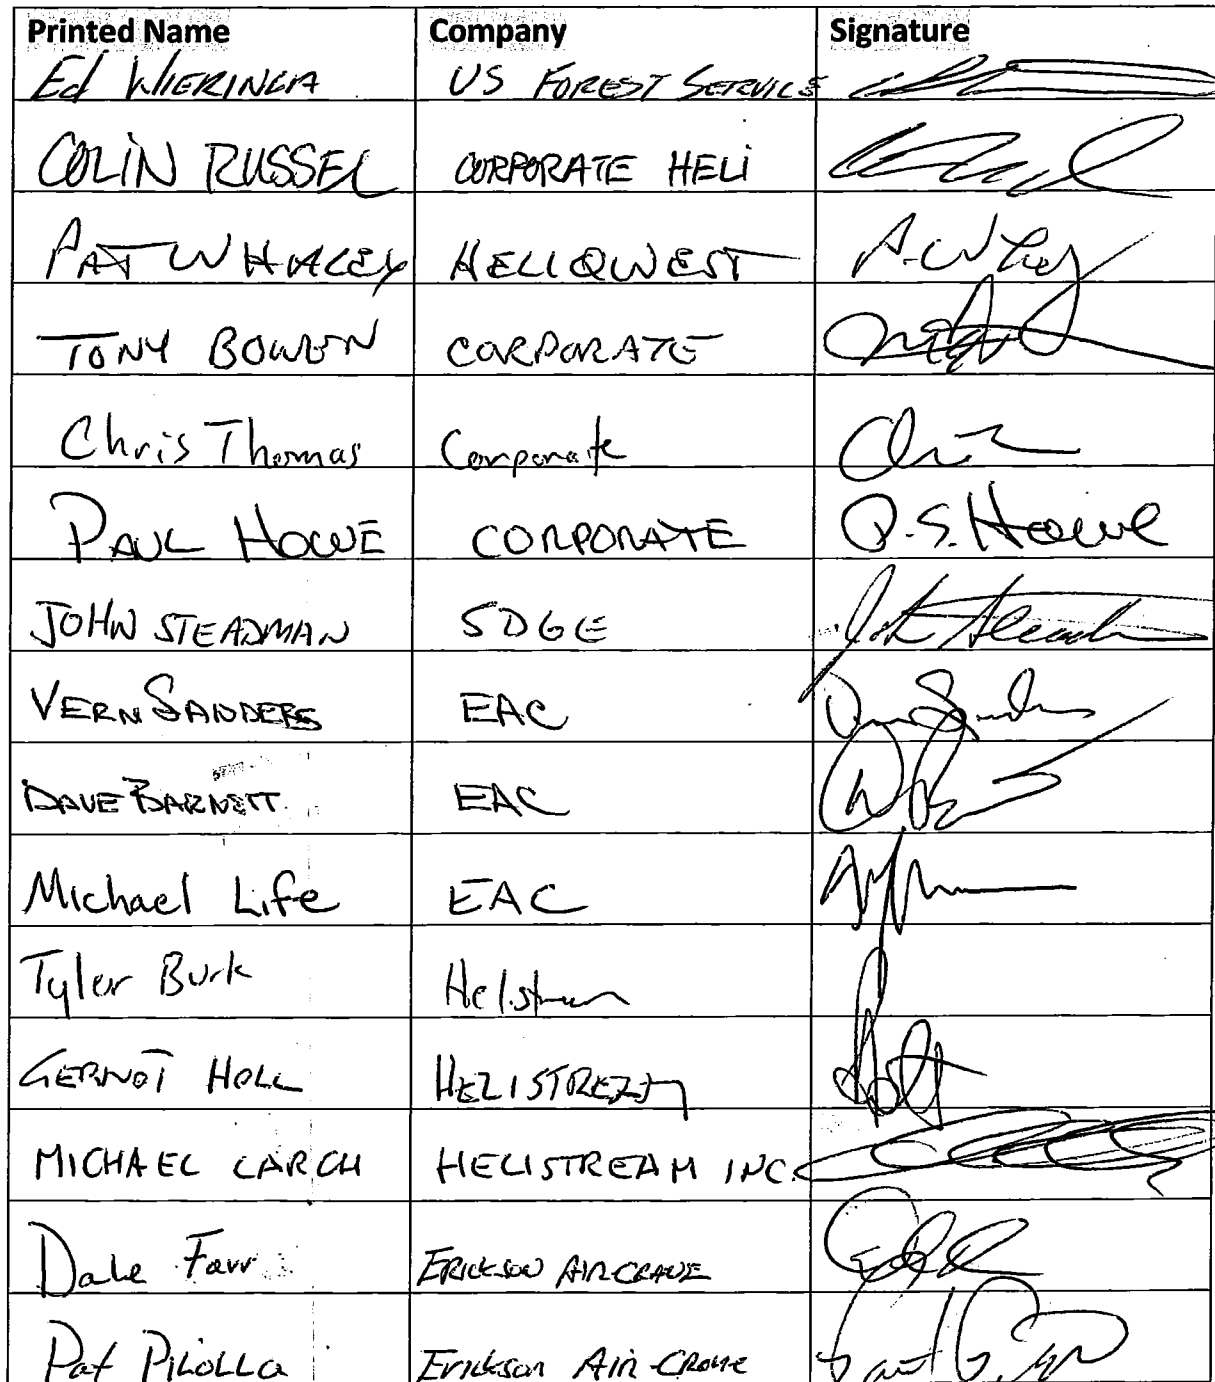 Printed Name Company Signature
Ed WIERINGA US FOREST SERVICE
COLIN RUSSEL CORPORATE HELI
PAT WHALEY HELIQWEST P. Whaley
TONY BOWEN CORPORATE
Chris Thomas Corporate
PAUL HOWE CORPORATE P.S. Howe
JOHN STEADMAN SDGE John Steadman
VERN SANDERS EAC
DAVE BARNETT EAC
Michael Life EAC
Tyler Burk Helistream
GERNOT HOLL HELISTREAM
MICHAEL LARCH HELISTREAM INC.
Dale Farr ERICKSON AIR CRANE
Pat PILOLLA Erickson Air-Crane